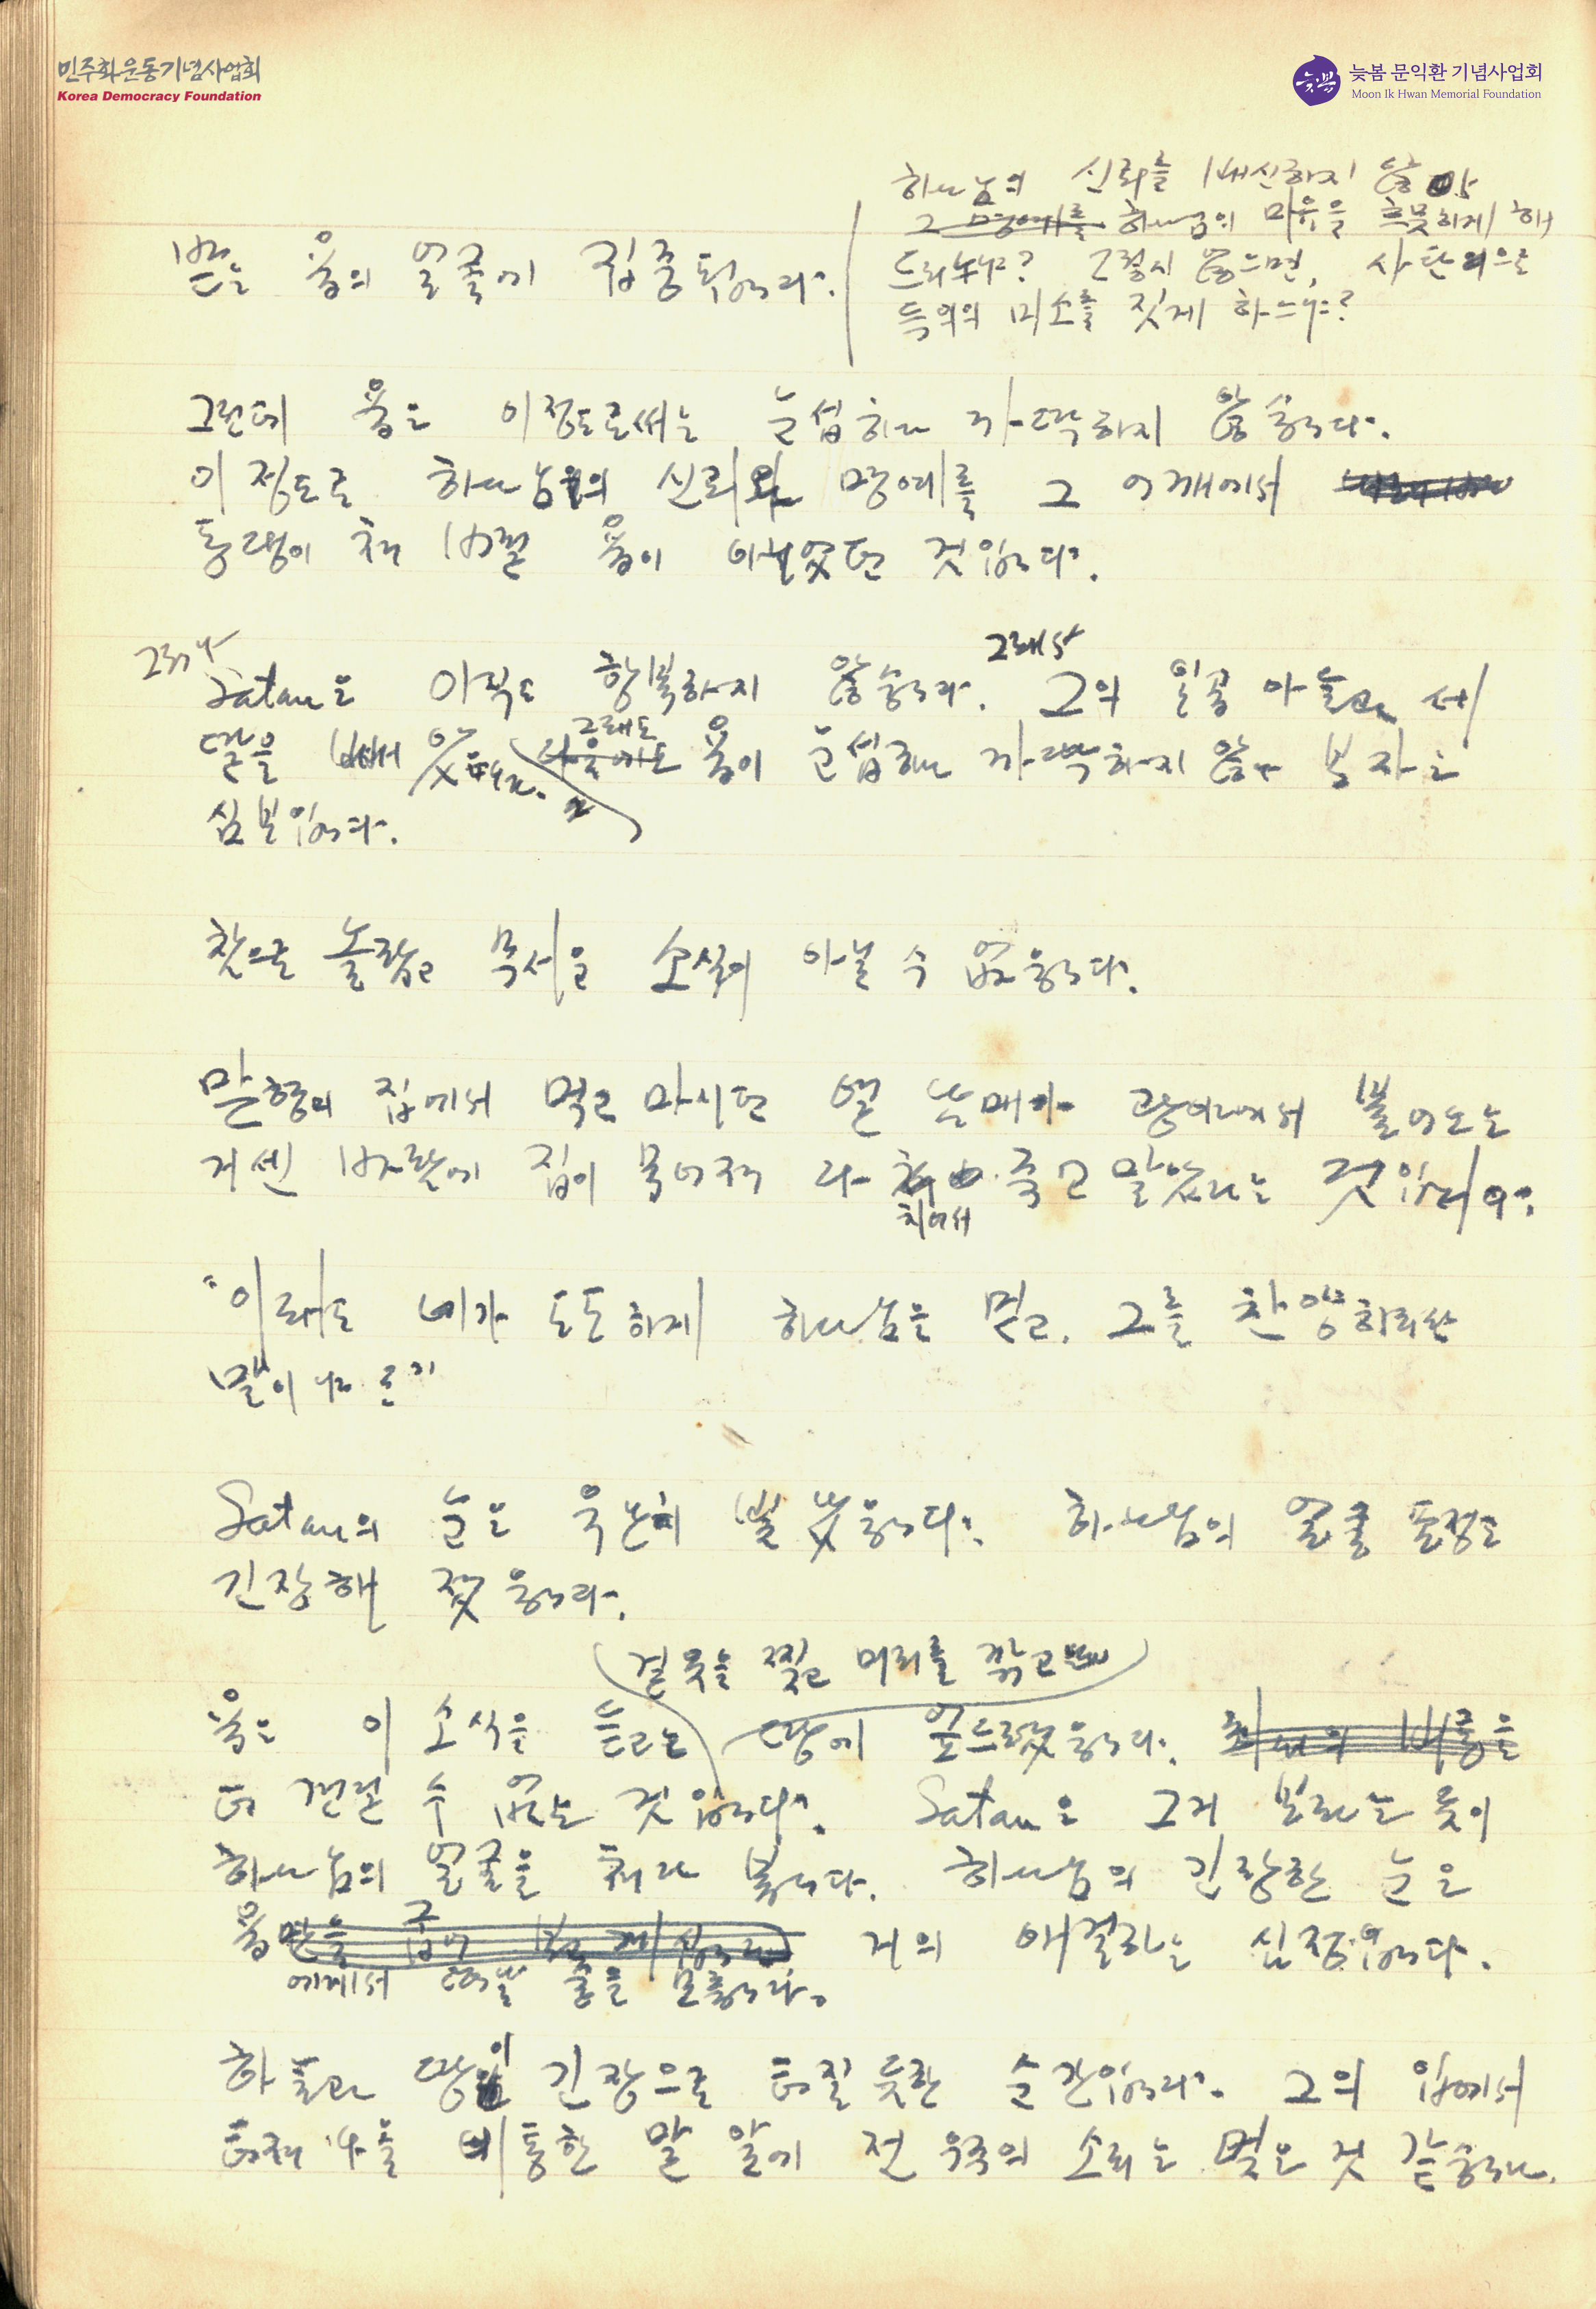 민주화운동기념사업회
Korea Democracy Foundation
늦봄
늦봄 문익환 기념사업회
Moon Ik Hwan Memorial Foundation
하나님의 신뢰를 배신하지 않아
그 명예를 하나님의 마음을 흐뭇하게 해
드리느냐? 그렇지 않으면, 사탄으로
득의의 미소를 짓게 하느냐?
욥의 얼굴에 집중됩니다.
그런데 욥은 이정도로써는 눈섭하나 까딱하지 않습니다.
이정도로 하나님의 신뢰와 명예를 그 어깨에서
동댕이 쳐 버릴 욥이 아니었던 것입니다.
그러나
Satan은 아직도 항복하지 않습니다. 그래서 그의 일곱 아들과 세
딸을 뺏어
그래도
욥이 눈섭하나 까딱하지 않나 보자는
심보입니다.
참으로 놀랍고 무서운 소식이 아닐 수 없읍니다.
맏형의 집에서 먹고 마시던 열 남매가 광야에서 불어오는
거센 바람에 집이 무너져 다 죽고 말았다는 것입니다.
치어서
"이래도 네가 도도하게 하나님을 믿고, 그를 찬양하리란
말이냐?"
Satan의 눈은 유난히 빛났읍니다. 하나님의 얼굴 표정도
긴장해 졌읍니다.
겉옷을 찢고 머리를 깎고
욥은 이 소식을 듣고는 땅에 엎드렸읍니다. 최후의
더 견딜 수 없는 것입니다. Satan은 그거 보라는 듯이
하나님의 얼굴을 쳐다 봅니다. 하나님의 긴장한 눈은
욥 거의 애걸하는 심정입니다.
에게서 떠날 줄을 모릅니다.
하늘과 땅이 긴장으로 터질 듯한 순간입니다. 그의 입에서
터져 나올 비통한 말 앞에 전 우주의 소리는 멎은 것 같습니다.